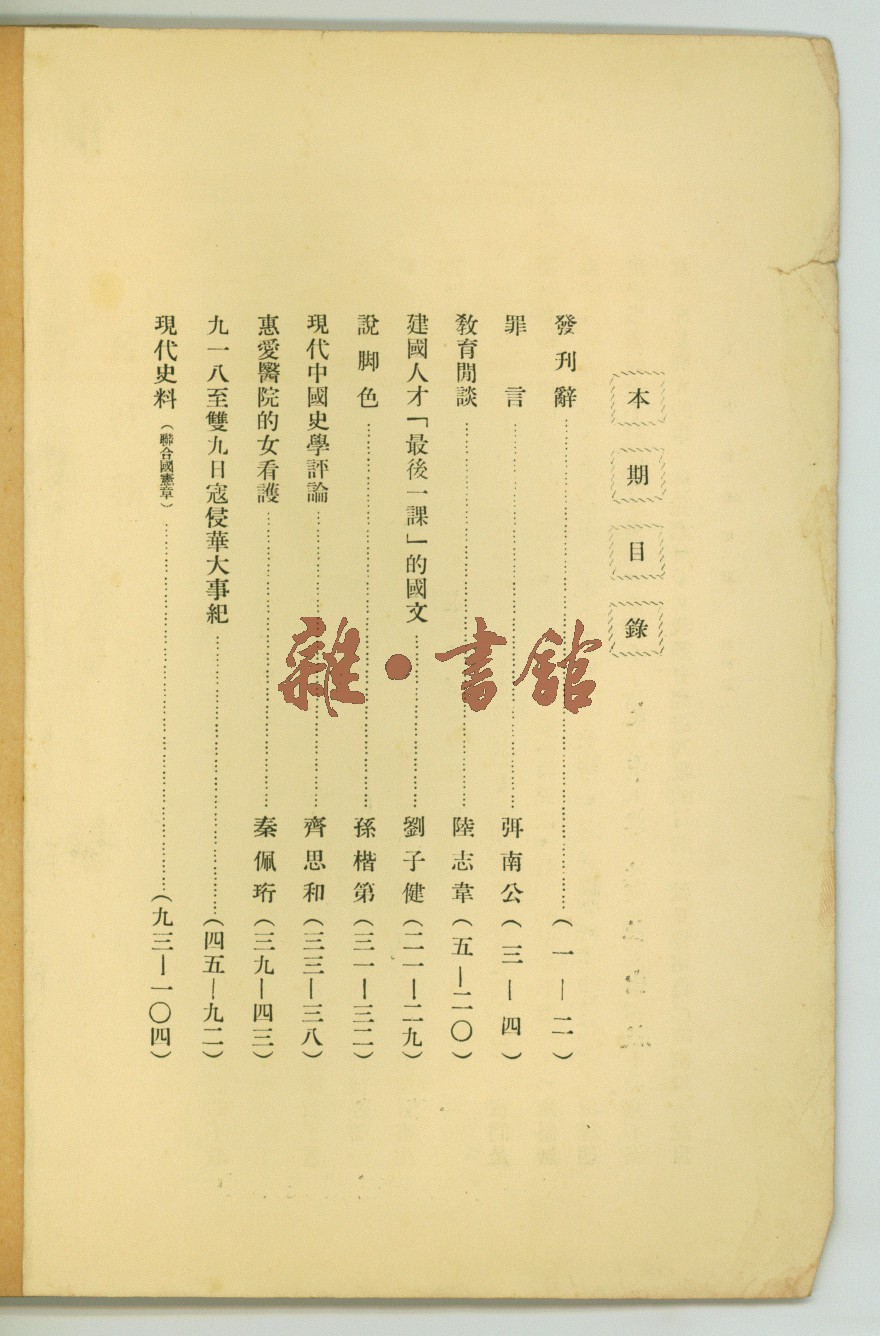 本期目錄
發刊辭……(一—二)
罪言……弭南公(三—四)
教育閒談……陸志韋(五—二〇)
建國人才「最後一課」的國文……劉子健(二一—二九)
說脚色……孫楷第(三一—三二)
現代中國史學評論……齊思和(三三—三八)
惠愛醫院的女看護……秦佩珩(三九—四三)
九一八至雙九日寇侵華大事紀……(四五—九二)
現代史料(聯合國憲章)……(九三—一〇四)
雜·書館